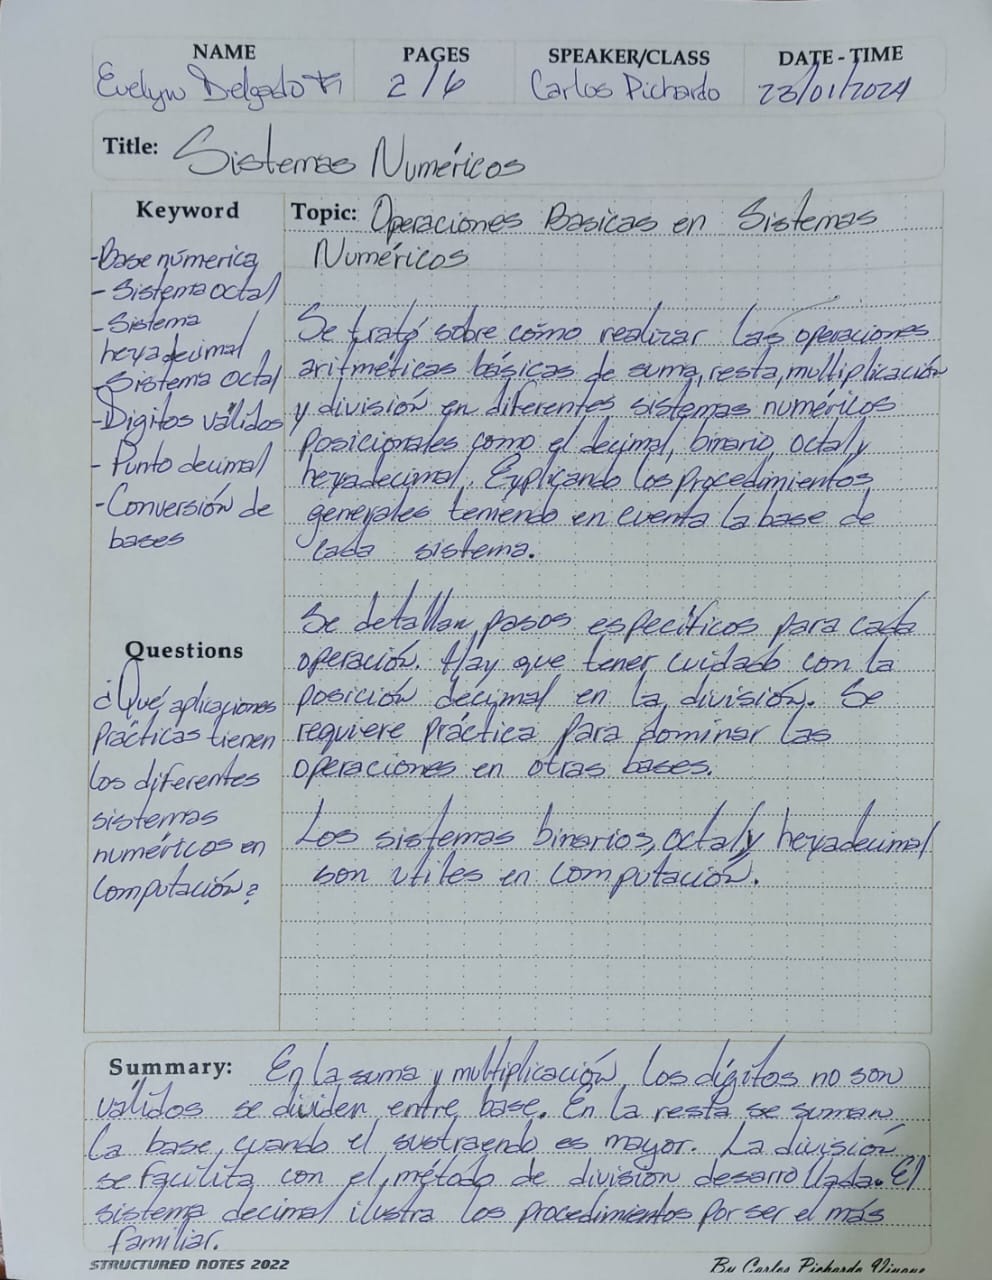 NAME PAGES SPEAKER/CLASS DATE - TIME
Evelyn Delgado 2/6 Carlos Pichardo 23/01/2024
Title: Sistemas Numéricos
Keyword
-Base númerica
- Sistema octal
- Sistema
hexadecimal
- Sistema octal
-Digitos válidos
- Punto decimal
-Conversión de
bases
Questions
¿Qué aplicaciones
prácticas tienen
los diferentes
sistemas
numéricos en
computación?
Topic: Operaciones Basicas en Sistemas
Numéricos
Se trató sobre cómo realizar las operaciones
aritméticas básicas de suma, resta, multiplicación
y división en diferentes sistemas numéricos
posicionales como el decimal, binario, octal y
hexadecimal. Explicando los procedimientos
generales teniendo en cuenta la base de
cada sistema.
Se detallan pasos específicos para cada
operación. Hay que tener cuidado con la
posición decimal en la división. Se
requiere práctica para dominar las
operaciones en otras bases.
Los sistemas binarios, octal y hexadecimal
son utiles en computación.
Summary: En la suma y multiplicación, los dígitos no son
válidos se dividen entre base. En la resta se suman
la base, cuando el sustraendo es mayor. La división
se facilita con el método de división desarrollada. El
sistema decimal ilustra los procedimientos por ser el más
familiar.
STRUCTURED NOTES 2022 By Carlos Pichardo